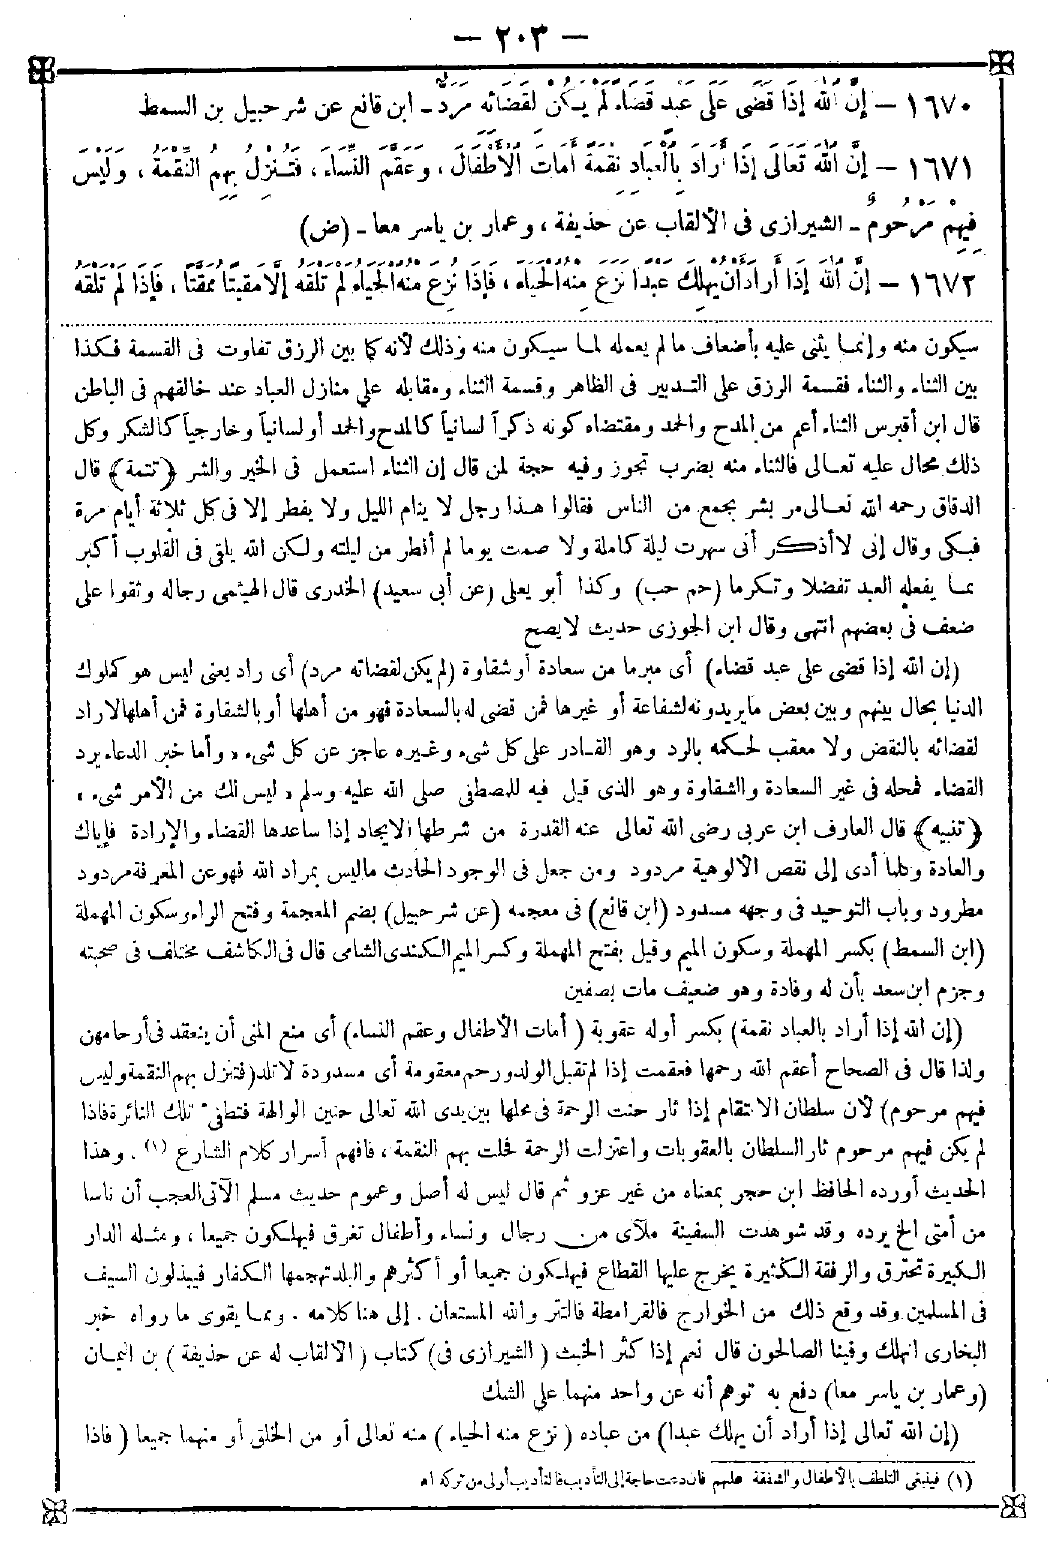 — ٢٠٣ —
١٦٧٠ — إِنَّ اللّٰهَ إِذَا قَضَى عَلَى عَبْدٍ قَضَاءً لَمْ يَكُنْ لِقَضَائِهِ مَرَدٌّ ـ ابن قانع عن شرحبيل بن السمط
١٦٧١ — إِنَّ اللّٰهَ تَعَالَى إِذَا أَرَادَ بِالْعِبَادِ نِقْمَةً أَمَاتَ الْأَطْفَالَ ، وَعَقَّمَ النِّسَاءَ ، فَتَنْزِلُ بِهِمُ النِّقْمَةُ ، وَلَيْسَ
فِيهِمْ مَرْحُومٌ ـ الشيرازى فى الألقاب عن حذيفة ، وعمار بن ياسر معا ـ (ض)
١٦٧٢ — إِنَّ اللّٰهَ إِذَا أَرَادَ أَنْ يُهْلِكَ عَبْدًا نَزَعَ مِنْهُ الْحَيَاءَ ، فَإِذَا نُزِعَ مِنْهُ الْحَيَاءُ لَمْ تَلْقَهُ إِلَّا مَقِيتًا مُمَقَّتًا ، فَإِذَا لَمْ تَلْقَهُ
سيكون منه وإنما يثنى عليه بأضعاف مالم يعمله لما سيكون منه وذلك لأنه كما بين الرزق تفاوت فى القسمة فكذا
بين الثناء والثناء فقسمة الرزق على التدبير فى الظاهر وقسمة الثناء ومقابله على منازل العباد عند خالقهم فى الباطن
قال ابن أقبرس الثناء أعم من المدح والحمد ومقتضاه كونه ذكراً لسانياً كالمدح والحمد أو لسانياً وخارجياً كالشكر وكل
ذلك محال عليه تعالى فالثناء منه بضرب تجوز وفيه حجة لمن قال إن الثناء استعمل فى الخير والشر ﴿تتمة﴾ قال
الدقاق رحمه الله تعالى مر بشر بجمع من الناس فقالوا هذا رجل لا ينام الليل ولا يفطر إلا فى كل ثلاثة أيام مرة
فبكى وقال إنى لا أذكر أنى سهرت ليلة كاملة ولا صمت يوما لم أفطر من ليلته ولكن الله يلقى فى القلوب أكبر
مما يفعله العبد تفضلا وتكرما (حم حب) وكذا أبو يعلى (عن أبى سعيد) الخدرى قال الهيثمى رجاله وثقوا على
ضعف فى بعضهم انتهى وقال ابن الجوزى حديث لا يصح
(إن الله إذا قضى على عبد قضاء) أى مبرما من سعادة أو شقاوة (لم يكن لقضائه مرد) أى راد يعنى ليس هو كملوك
الدنيا يحال بينهم وبين بعض ما يريدونه لشفاعة أو غيرها فمن قضى له بالسعادة فهو من أهلها أو بالشقاوة فمن أهلها لا راد
لقضائه بالنقض ولا معقب لحكمه بالرد وهو القادر على كل شىء وغيره عاجز عن كل شىء ، وأما خبر الدعاء يرد
القضاء فمحله فى غير السعادة والشقاوة وهو الذى قيل فيه للمصطفى صلى الله عليه وسلم « ليس لك من الأمر شىء »
﴿تنبيه﴾ قال العارف ابن عربى رضى الله تعالى عنه القدرة من شرطها الايجاد إذا ساعدها القضاء والإرادة فإياك
والعادة وكلما أدى إلى نقص الألوهية مردود ومن جعل فى الوجود الحادث ماليس بمراد الله فهو عن المعرفة مردود
مطرود وباب التوحيد فى وجهه مسدود (ابن قانع) فى معجمه (عن شرحبيل) بضم المعجمة وفتح الراء وسكون المهملة
(ابن السمط) بكسر المهملة وسكون الميم وقيل بفتح المهملة وكسر الميم الكندى الشامى قال فى الكاشف مختلف فى صحبته
وجزم ابن سعد بأن له وفادة وهو ضعيف مات بصفين
(إن الله إذا أراد بالعباد نقمة) بكسر أوله عقوبة (أمات الأطفال وعقم النساء) أى منع المنى أن ينعقد فى أرحامهن
ولذا قال فى الصحاح أعقم الله رحمها فعقمت إذا لم تقبل الولد ورحم معقومة أى مسدودة لا تلد (فتنزل بهم النقمة وليس
فيهم مرحوم) لأن سلطان الانتقام إذا ثار حنت الرحمة فى محلها بين يدى الله تعالى حنين الوالهة فتطفئ تلك النائرة فاذا
لم يكن فيهم مرحوم ثار السلطان بالعقوبات واعتزلت الرحمة فحلت بهم النقمة ، فافهم أسرار كلام الشارع (١) . وهذا
الحديث أورده الحافظ ابن حجر بمعناه من غير عزو ثم قال ليس له أصل وعموم حديث مسلم الآتى العجب أن ناسا
من أمتى الخ يرده وقد شوهدت السفينة ملآى من رجال ونساء وأطفال تغرق فيهلكون جميعا ، ومثله الدار
الكبيرة تحترق والرفقة الكثيرة يخرج عليها القطاع فيهلكون جميعا أو أكثرهم والبلد تهجمها الكفار فيبذلون السيف
فى المسلمين وقد وقع ذلك من الخوارج فالقرامطة فالتتر والله المستعان . إلى هنا كلامه . ومما يقوى ما رواه خبر
البخارى انهلك وفينا الصالحون قال نعم إذا كثر الخبث (الشيرازى فى) كتاب (الألقاب له عن حذيفة) بن اليمان
(وعمار بن ياسر معا) دفع به توهم أنه عن واحد منهما على الشك
(إن الله تعالى إذا أراد أن يهلك عبدا) من عباده (نزع منه الحياء) منه تعالى أو من الخلق أو منهما جميعا (فاذا
(١) فينبغى التلطف بالأطفال والشفقة عليهم فان دعت حاجة إلى التأديب فالتأديب أولى من تركه اه